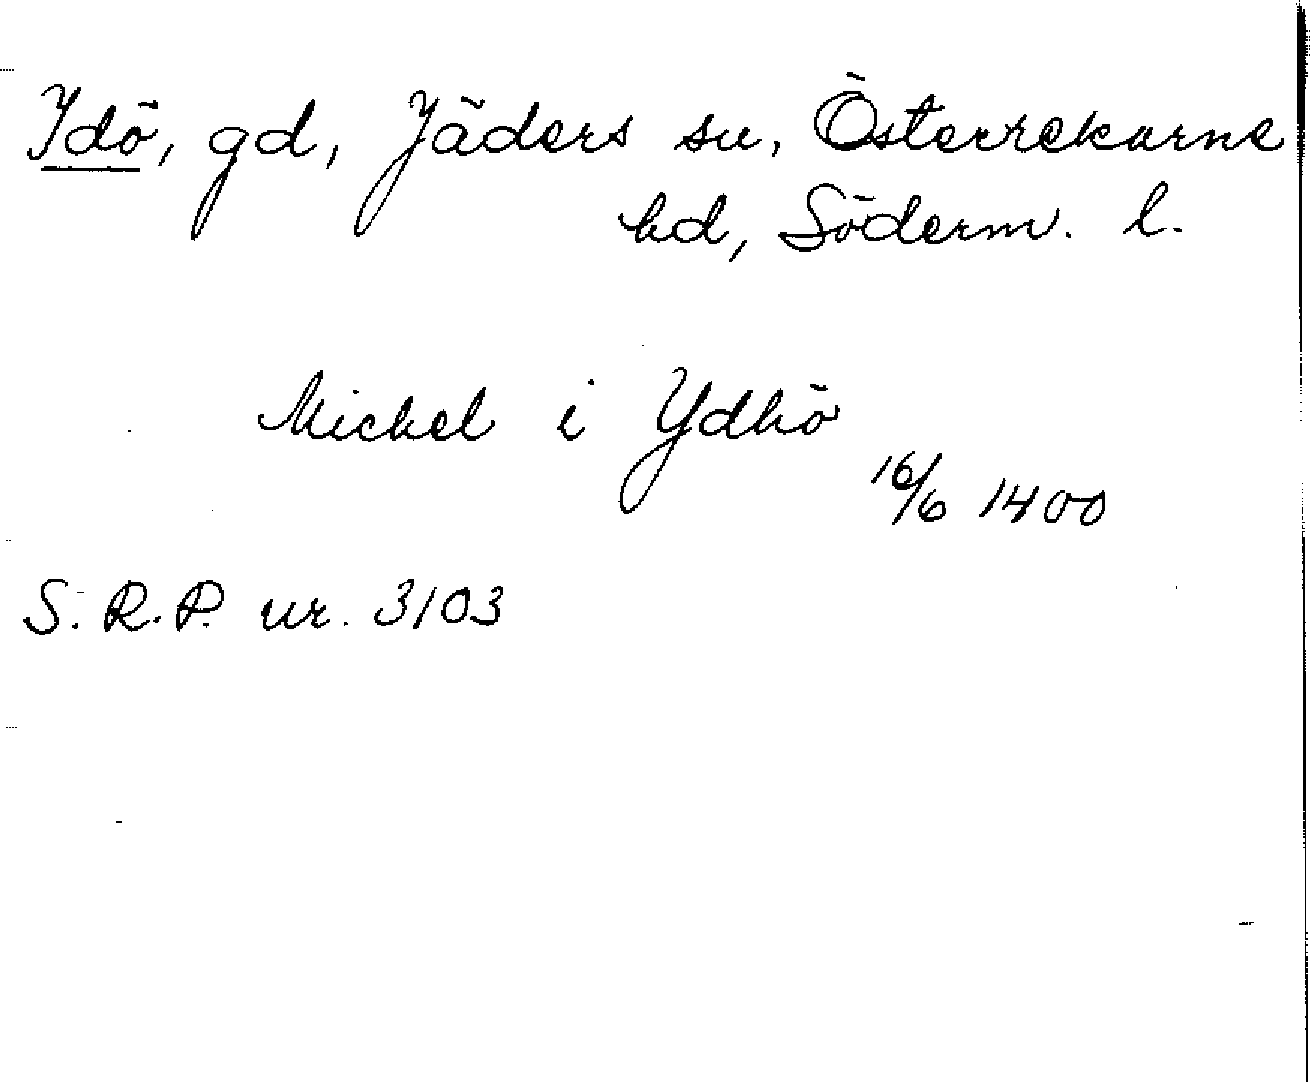 Idö, gd, Jäders sn, Österrekarne
hd, Söderm. l.
Mickel i Ydhö
16/6 1400
S.R.P. nr. 3103